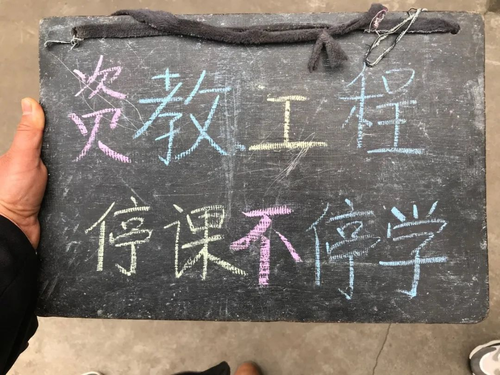 资教工程
停课不停学